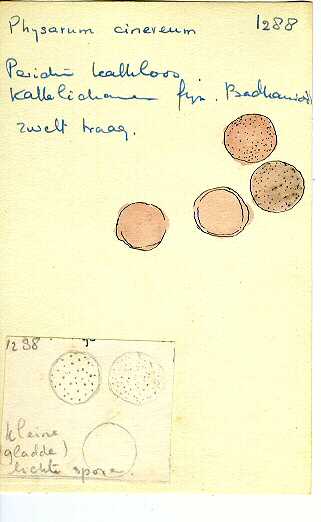 Physarum cinereum 1288
Peridie kalkloos
Kalklichamen fijn. Badhamioid
zwelt traag.
1298
kleine
(gladde)
lichte spore.